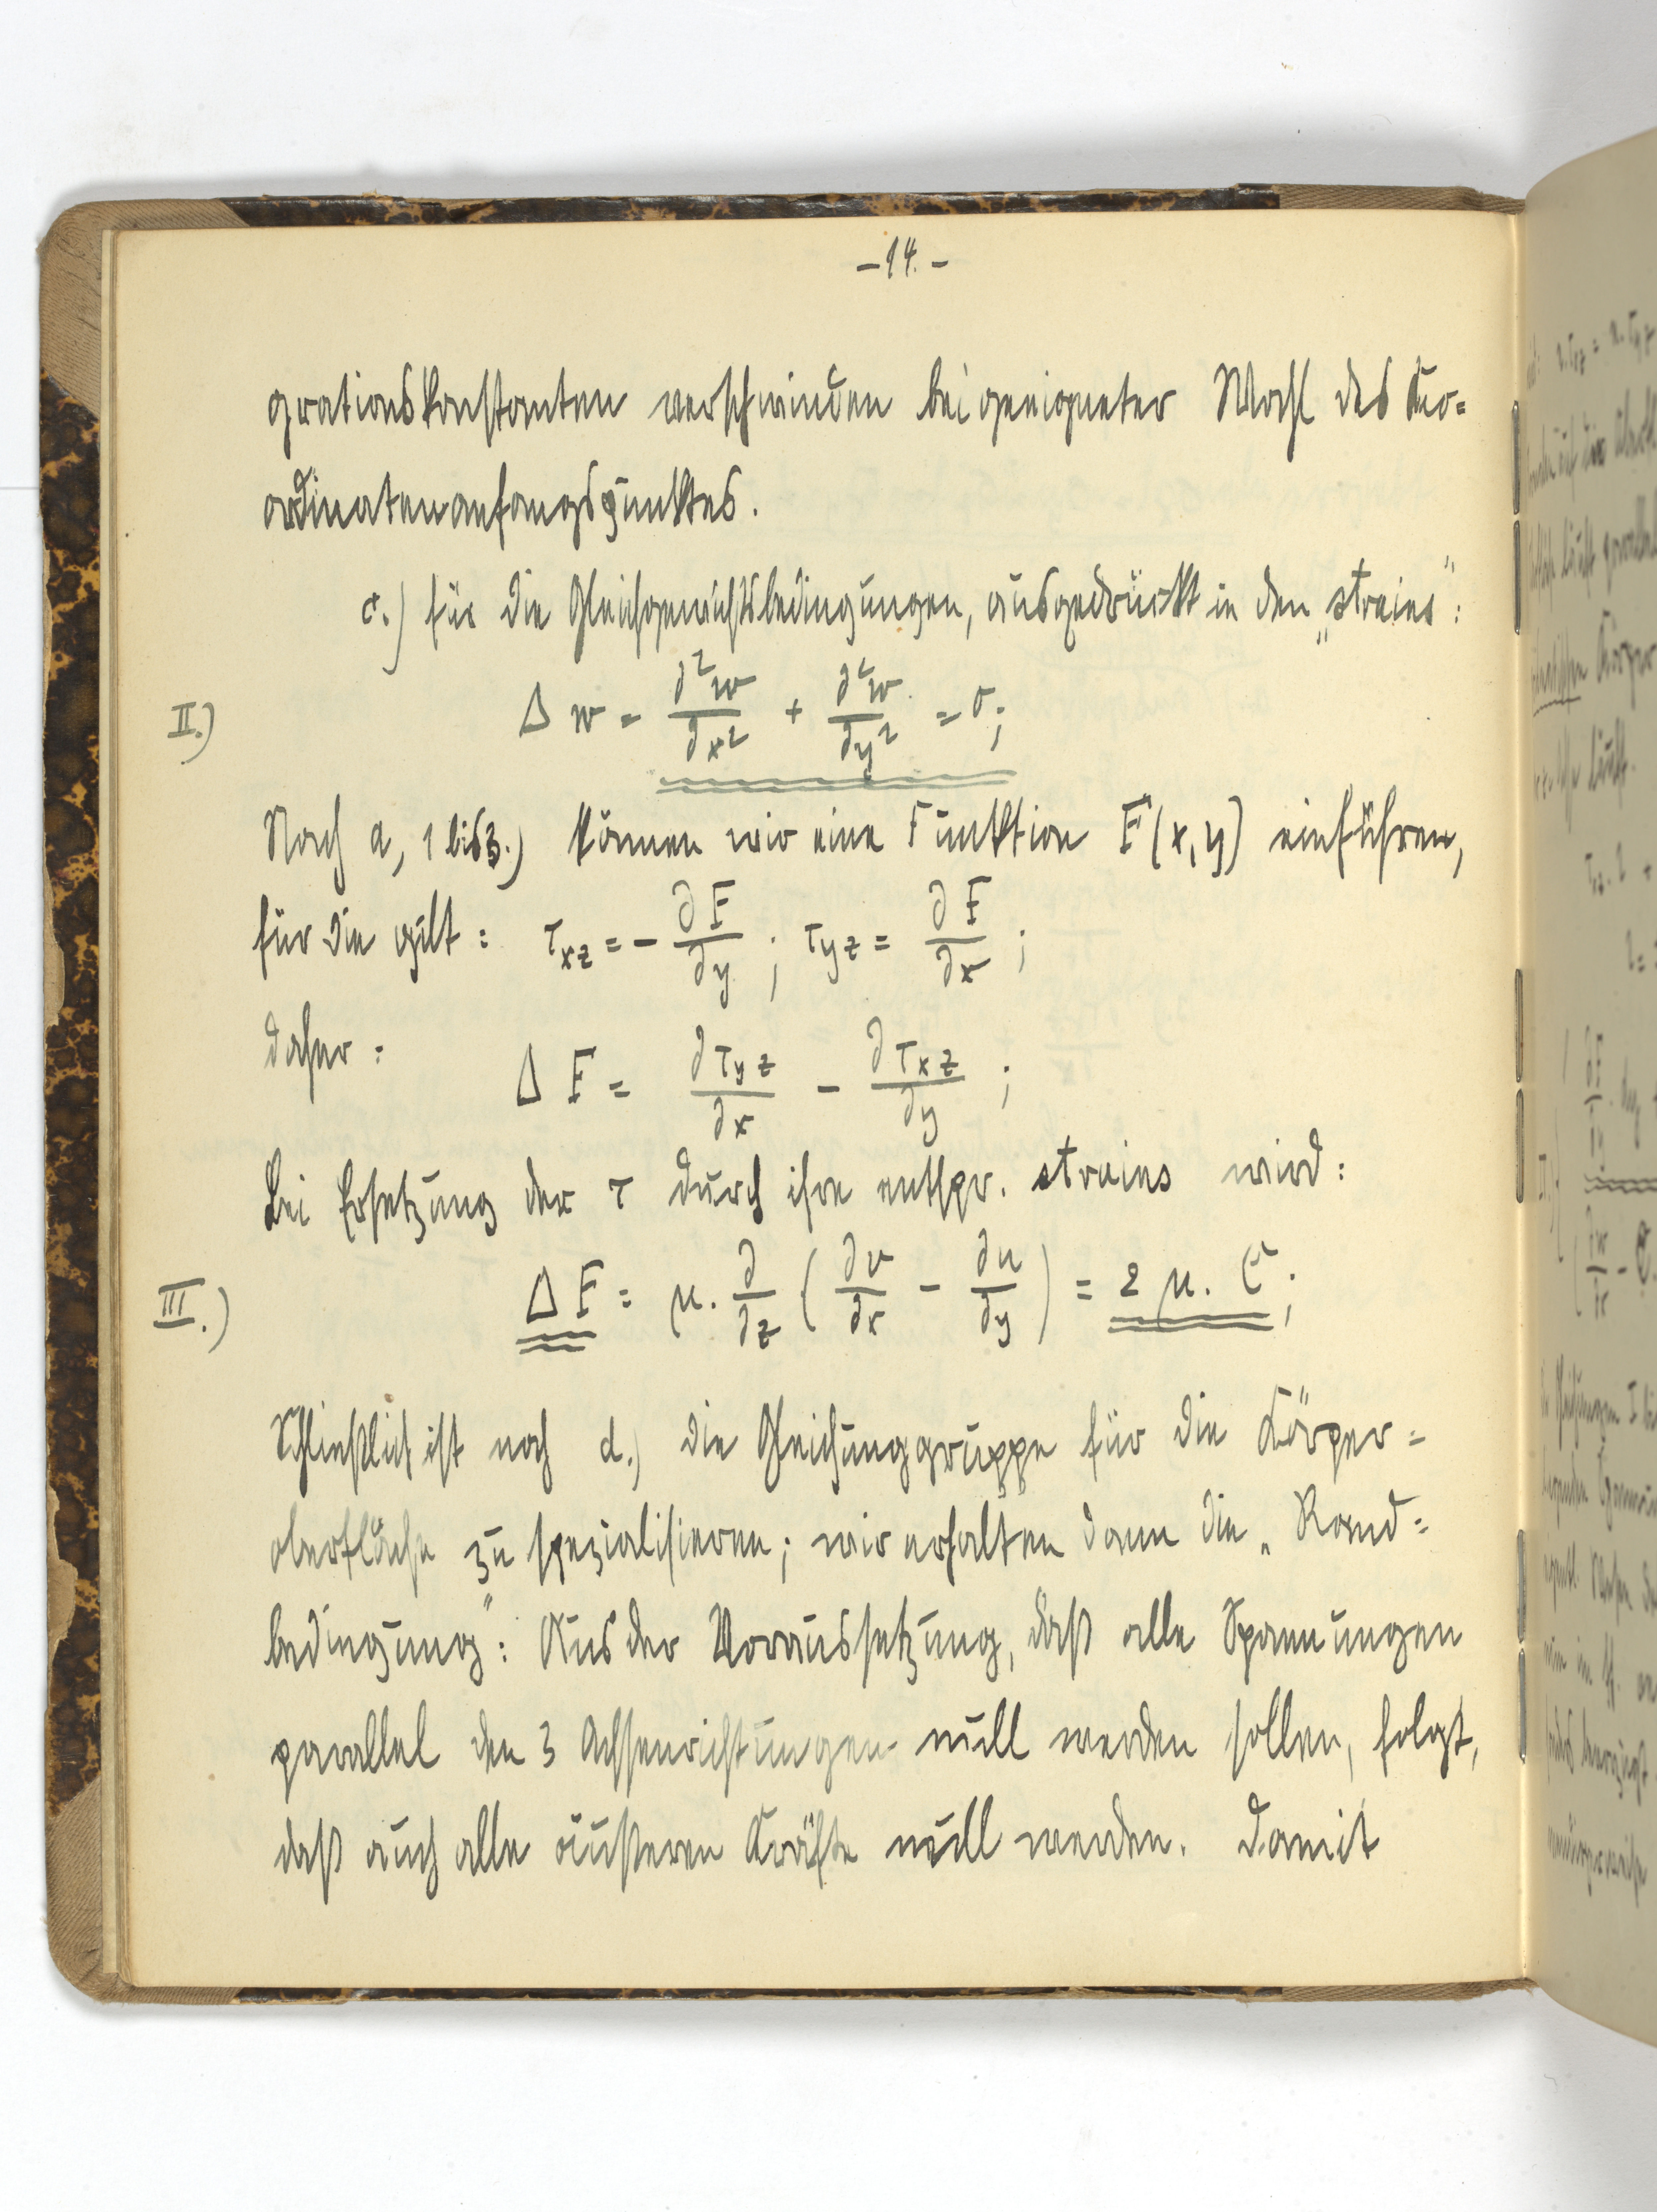 -14.-
grationskonstanten verschwinden bei geeigneter Wahl des Ko=
ordinatenanfangspunktes.
c.) für die Gleichgewichtsbedingungen, ausgedrückt in den „strains":
II.) Δ w = ∂²w/∂x² + ∂²w/∂y² = 0;
Nach a, 1 bis 3.) können wir eine Funktion F(x,y) einführen,
für die gilt: τxz = - ∂F/∂y ; τyz = ∂F/∂x ;
daher: Δ F = ∂τyz/∂x - ∂τxz/∂y ;
Bei Ersetzung der τ durch ihre entspr. strains wird:
III.) Δ F = μ. ∂/∂z (∂v/∂x - ∂u/∂y) = 2 μ. C;
Schließlich ist noch d.) die Gleichunggruppe für die Körper=
oberfläche zu spezialisieren; wir erhalten dann die „Rand=
bedingung": Aus der Voraussetzung, daß alle Spannungen
parallel den 3 Achsenrichtungen null werden sollen, folgt,
daß auch alle äußeren Kräfte null werden. Damit